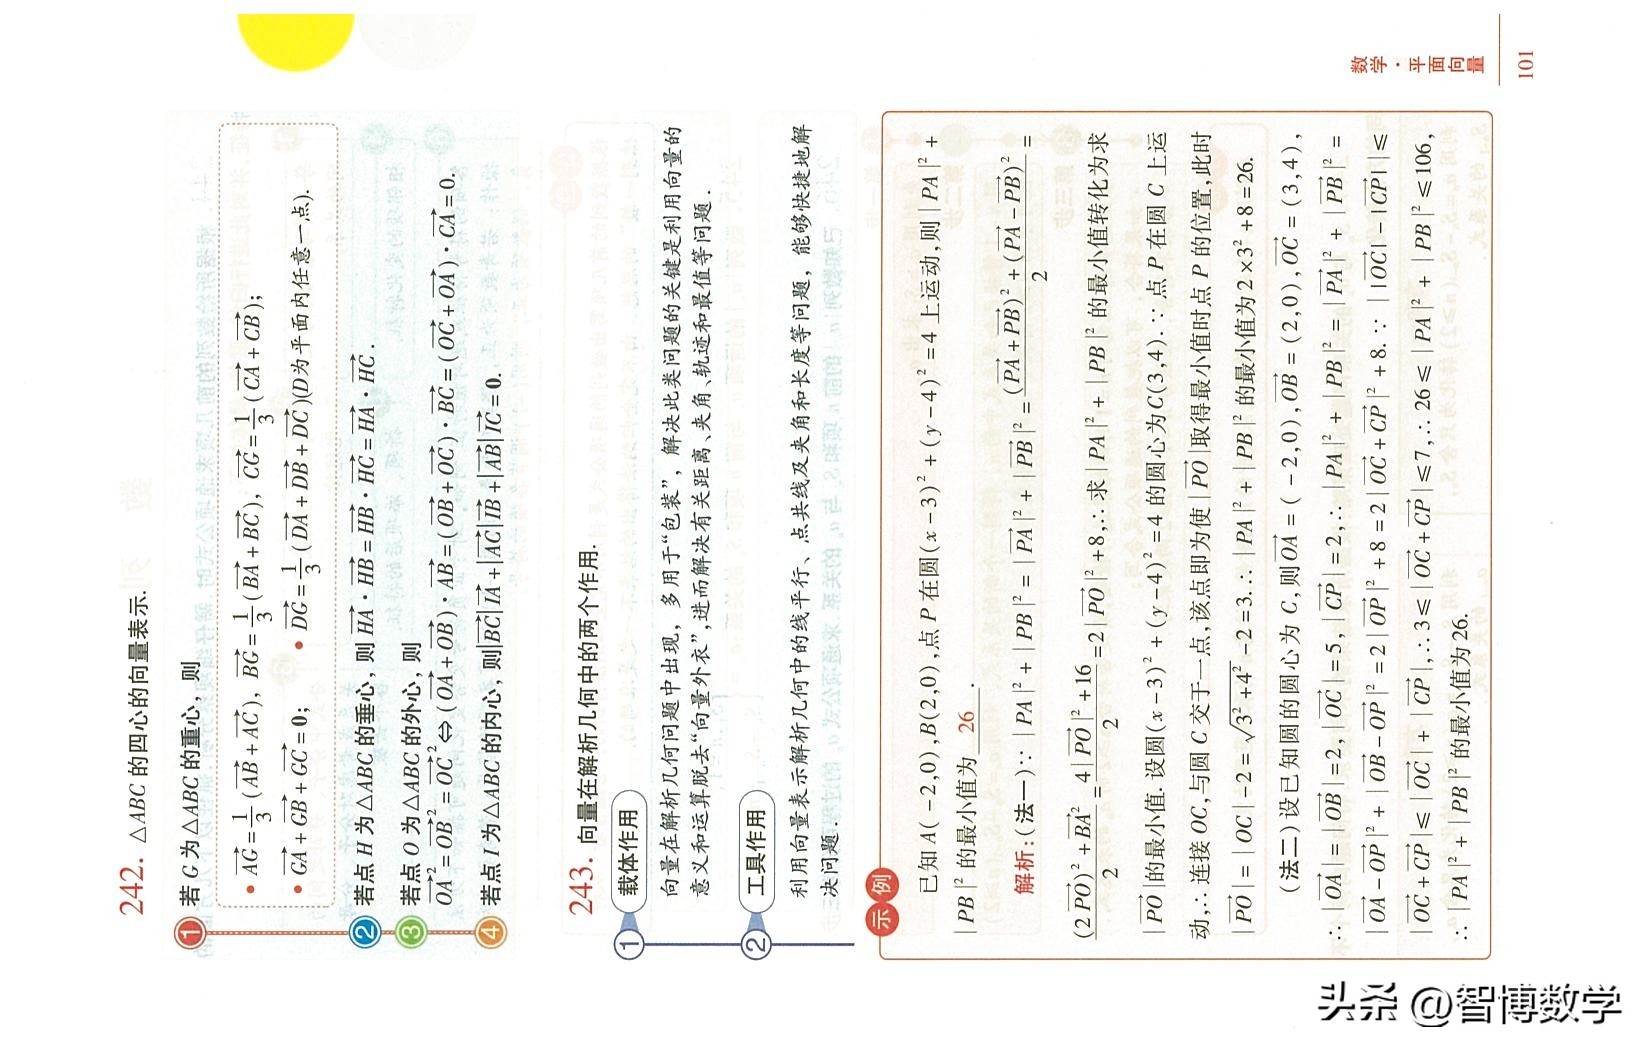 242. △ABC 的四心的向量表示.
① 若 G 为△ABC 的重心，则
• $\overrightarrow{AG}=\frac{1}{3}(\overrightarrow{AB}+\overrightarrow{AC})$, $\overrightarrow{BG}=\frac{1}{3}(\overrightarrow{BA}+\overrightarrow{BC})$, $\overrightarrow{CG}=\frac{1}{3}(\overrightarrow{CA}+\overrightarrow{CB})$;
• $\overrightarrow{GA}+\overrightarrow{GB}+\overrightarrow{GC}=\mathbf{0}$; • $\overrightarrow{DG}=\frac{1}{3}(\overrightarrow{DA}+\overrightarrow{DB}+\overrightarrow{DC})$(D为平面内任意一点).
② 若点 H 为△ABC 的垂心，则 $\overrightarrow{HA}\cdot\overrightarrow{HB}=\overrightarrow{HB}\cdot\overrightarrow{HC}=\overrightarrow{HA}\cdot\overrightarrow{HC}$.
③ 若点 O 为△ABC 的外心，则
$\overrightarrow{OA}^2=\overrightarrow{OB}^2=\overrightarrow{OC}^2\Leftrightarrow(\overrightarrow{OA}+\overrightarrow{OB})\cdot\overrightarrow{AB}=(\overrightarrow{OB}+\overrightarrow{OC})\cdot\overrightarrow{BC}=(\overrightarrow{OC}+\overrightarrow{OA})\cdot\overrightarrow{CA}=0$.
④ 若点 I 为△ABC 的内心，则$|\overrightarrow{BC}|\overrightarrow{IA}+|\overrightarrow{AC}|\overrightarrow{IB}+|\overrightarrow{AB}|\overrightarrow{IC}=\mathbf{0}$.
243. 向量在解析几何中的两个作用.
① 载体作用
向量在解析几何问题中出现，多用于“包装”，解决此类问题的关键是利用向量的
意义和运算脱去“向量外衣”，进而解决有关距离、夹角、轨迹和最值等问题.
② 工具作用
利用向量表示解析几何中的线平行、点共线及夹角和长度等问题，能够快捷地解
决问题.
示例
已知 A(-2,0),B(2,0),点 P 在圆$(x-3)^2+(y-4)^2=4$ 上运动,则$|PA|^2+$
$|PB|^2$ 的最小值为 26 .
解析:(法一)∵$|PA|^2+|PB|^2=|\overrightarrow{PA}|^2+|\overrightarrow{PB}|^2=\frac{(\overrightarrow{PA}+\overrightarrow{PB})^2+(\overrightarrow{PA}-\overrightarrow{PB})^2}{2}=$
$\frac{(2\overrightarrow{PO})^2+\overrightarrow{BA}^2}{2}=\frac{4|\overrightarrow{PO}|^2+16}{2}=2|\overrightarrow{PO}|^2+8$,∴求$|PA|^2+|PB|^2$ 的最小值转化为求
$|\overrightarrow{PO}|$的最小值. 设圆$(x-3)^2+(y-4)^2=4$ 的圆心为C(3,4).∵点 P 在圆 C 上运
动,∴连接 OC,与圆 C 交于一点,该点即为使$|\overrightarrow{PO}|$取得最小值时点 P 的位置,此时
$|\overrightarrow{PO}|=|OC|-2=\sqrt{3^2+4^2}-2=3$.∴$|PA|^2+|PB|^2$ 的最小值为$2\times3^2+8=26$.
(法二)设已知圆的圆心为 C,则$\overrightarrow{OA}=(-2,0),\overrightarrow{OB}=(2,0),\overrightarrow{OC}=(3,4)$,
∴$|\overrightarrow{OA}|=|\overrightarrow{OB}|=2,|\overrightarrow{OC}|=5,|\overrightarrow{CP}|=2$,∴$|PA|^2+|PB|^2=|\overrightarrow{PA}|^2+|\overrightarrow{PB}|^2=$
$|\overrightarrow{OA}-\overrightarrow{OP}|^2+|\overrightarrow{OB}-\overrightarrow{OP}|^2=2|\overrightarrow{OP}|^2+8=2|\overrightarrow{OC}+\overrightarrow{CP}|^2+8$.∵$||\overrightarrow{OC}|-|\overrightarrow{CP}||\leq$
$|\overrightarrow{OC}+\overrightarrow{CP}|\leq|\overrightarrow{OC}|+|\overrightarrow{CP}|$,∴$3\leq|\overrightarrow{OC}+\overrightarrow{CP}|\leq7$,∴$26\leq|PA|^2+|PB|^2\leq106$,
∴$|PA|^2+|PB|^2$ 的最小值为26.
数学·平面向量
101
头条 @智博数学